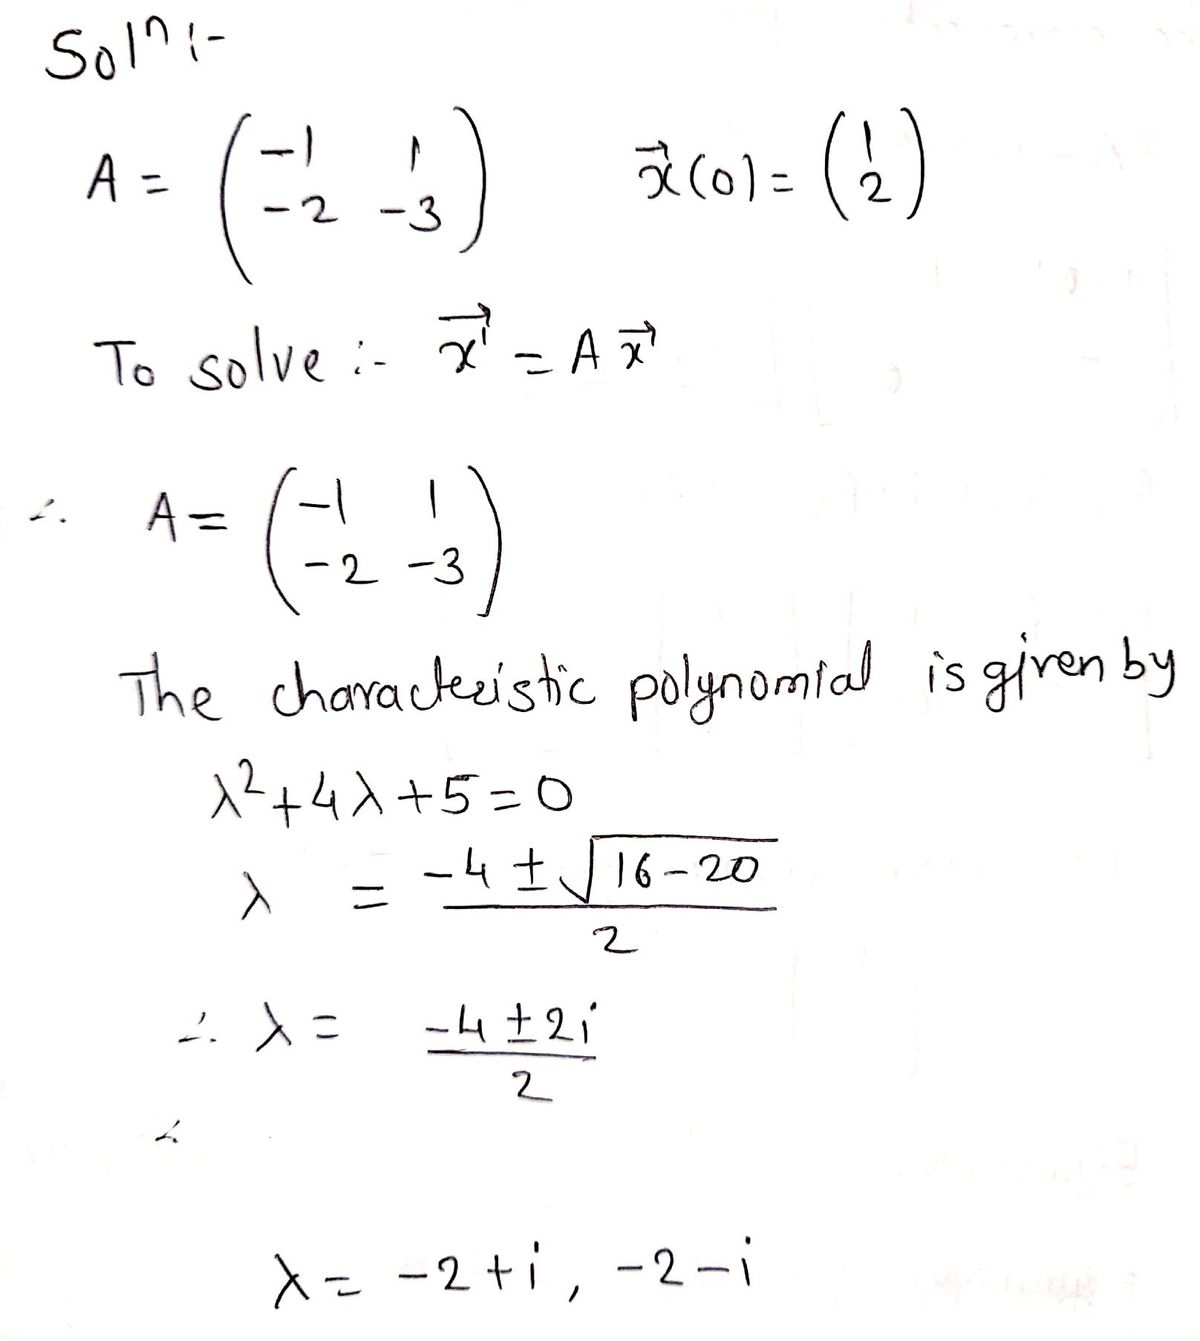 Solⁿ :-
A = ( -1 1 ; -2 -3 ) x⃗(0) = ( 1 ; 2 )
To solve :- x⃗' = A x⃗
∴ A = ( -1 1 ; -2 -3 )
The characteristic polynomial is given by
λ² + 4λ + 5 = 0
λ = (-4 ± √(16-20)) / 2
∴ λ = (-4 ± 2i) / 2
∴
λ = -2 + i, -2 - i